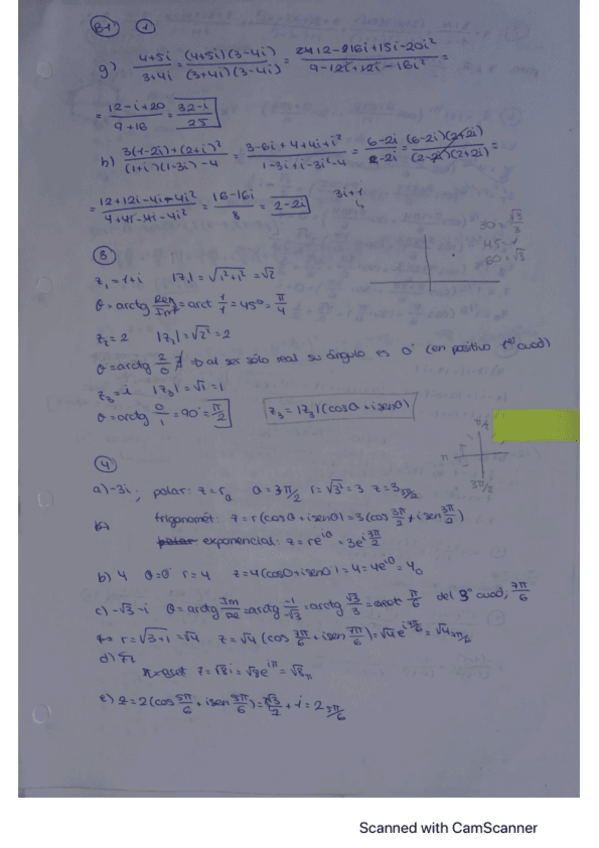 B1 1
g) (4+5i)/(3+4i) = (4+5i)(3-4i)/(3+4i)(3-4i) = 12-16i+15i-20i²/9-12i+12i-16i² =
= 12-i+20/9+16 = 32-i/25
h) 3(1-2i)+(2+i)²/(1+i)(1-3i)-4 = 3-6i+4+4i+i²/1-3i+i-3i²-4 = 6-2i/-2i = (6-2i)(2+2i)/(2-2i)(2+2i) =
= 12+12i-4i-4i²/4+4i-4i-4i² = 16-16i/8 = 2-2i
3
z₁=1+i |z₁|=√1²+1² =√2
θ=arctg Re/Im = arct 1/1 = 45º = π/4
z₂=2 |z₂|=√2² =2
θ=arctg 2/0 ∄ ⇒ al ser sólo real su ángulo es 0º (en positivo 1º cuad)
z₃=i |z₃|=√1=1
θ=arctg 0/1 = 90º = π/2
z₃=|z₃|(cosθ+isenθ)
4
a) -3i; polar: z=r θ=3π/2 r=√3²=3 z=3 3π/2
trigonomét: z=r(cosθ+isenθ)=3(cos 3π/2 + isen 3π/2)
exponencial: z=re^iθ =3e^i 3π/2
b) 4 θ=0º r=4 z=4(cosθ+isenθ)=4=4e^iθ=4₀
c) -√3-i θ=arctg Im/Re = arctg -1/-√3 = arctg √3/3 = π/6 del 3º cuad, 7π/6
r=√3+1=√4 z=√4(cos 7π/6 + isen 7π/6)=√4e^i 7π/6=√4 7π/6
d)
z=√8i=√8e^iπ=√8π
e) z=2(cos 5π/6 + isen 5π/6) = √3/2 + i = 2 5π/6
Scanned with CamScanner